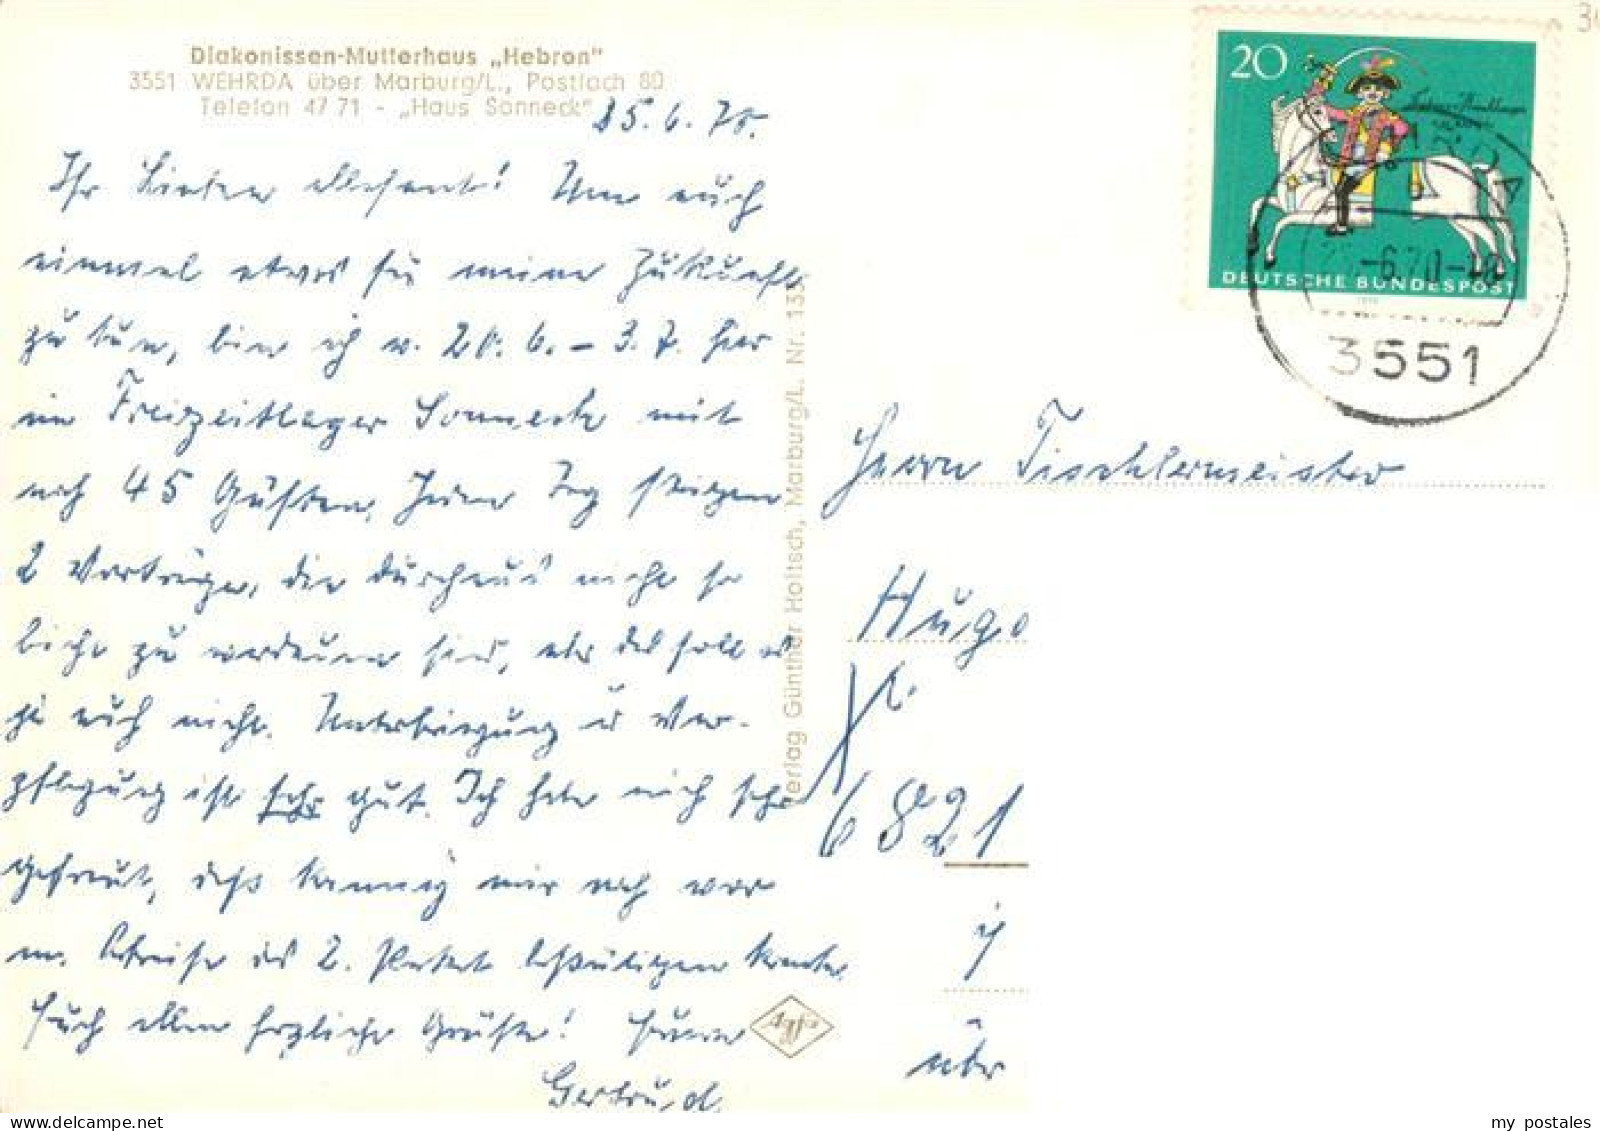 Diakonissen-Mutterhaus „Hebron"
3551 WEHRDA über Marburg/L., Postfach 80
Telefon 47 71 - „Haus Sonneck"
25.6.70.
Ihr Lieben allesamt! Um auch
einmal etwas für meine Zukunft
zu tun, bin ich v. 20.6. – 3.7. hier
im Freizeitlager Sonneck mit
noch 45 Gästen. Jeden Tag steigen
2 Vorträge, die durchaus nicht so
leicht zu verdauen sind, aber das soll es
ja auch nicht. Unterbringung u Ver-
pflegung ist sehr gut. Ich habe mich sehr
gefreut, daß Henning mir noch vor
m. Abreise das 2. Paket bestätigen konnte.
Euch allen herzliche Grüße! Eure
Gertrud.
Verlag Günther Holtsch, Marburg/L. Nr. 133
Agfa
20
DEUTSCHE BUNDESPOST
1970
-6.70-
3551
Herrn Tischlermeister
Hugo
6821
über
my postales